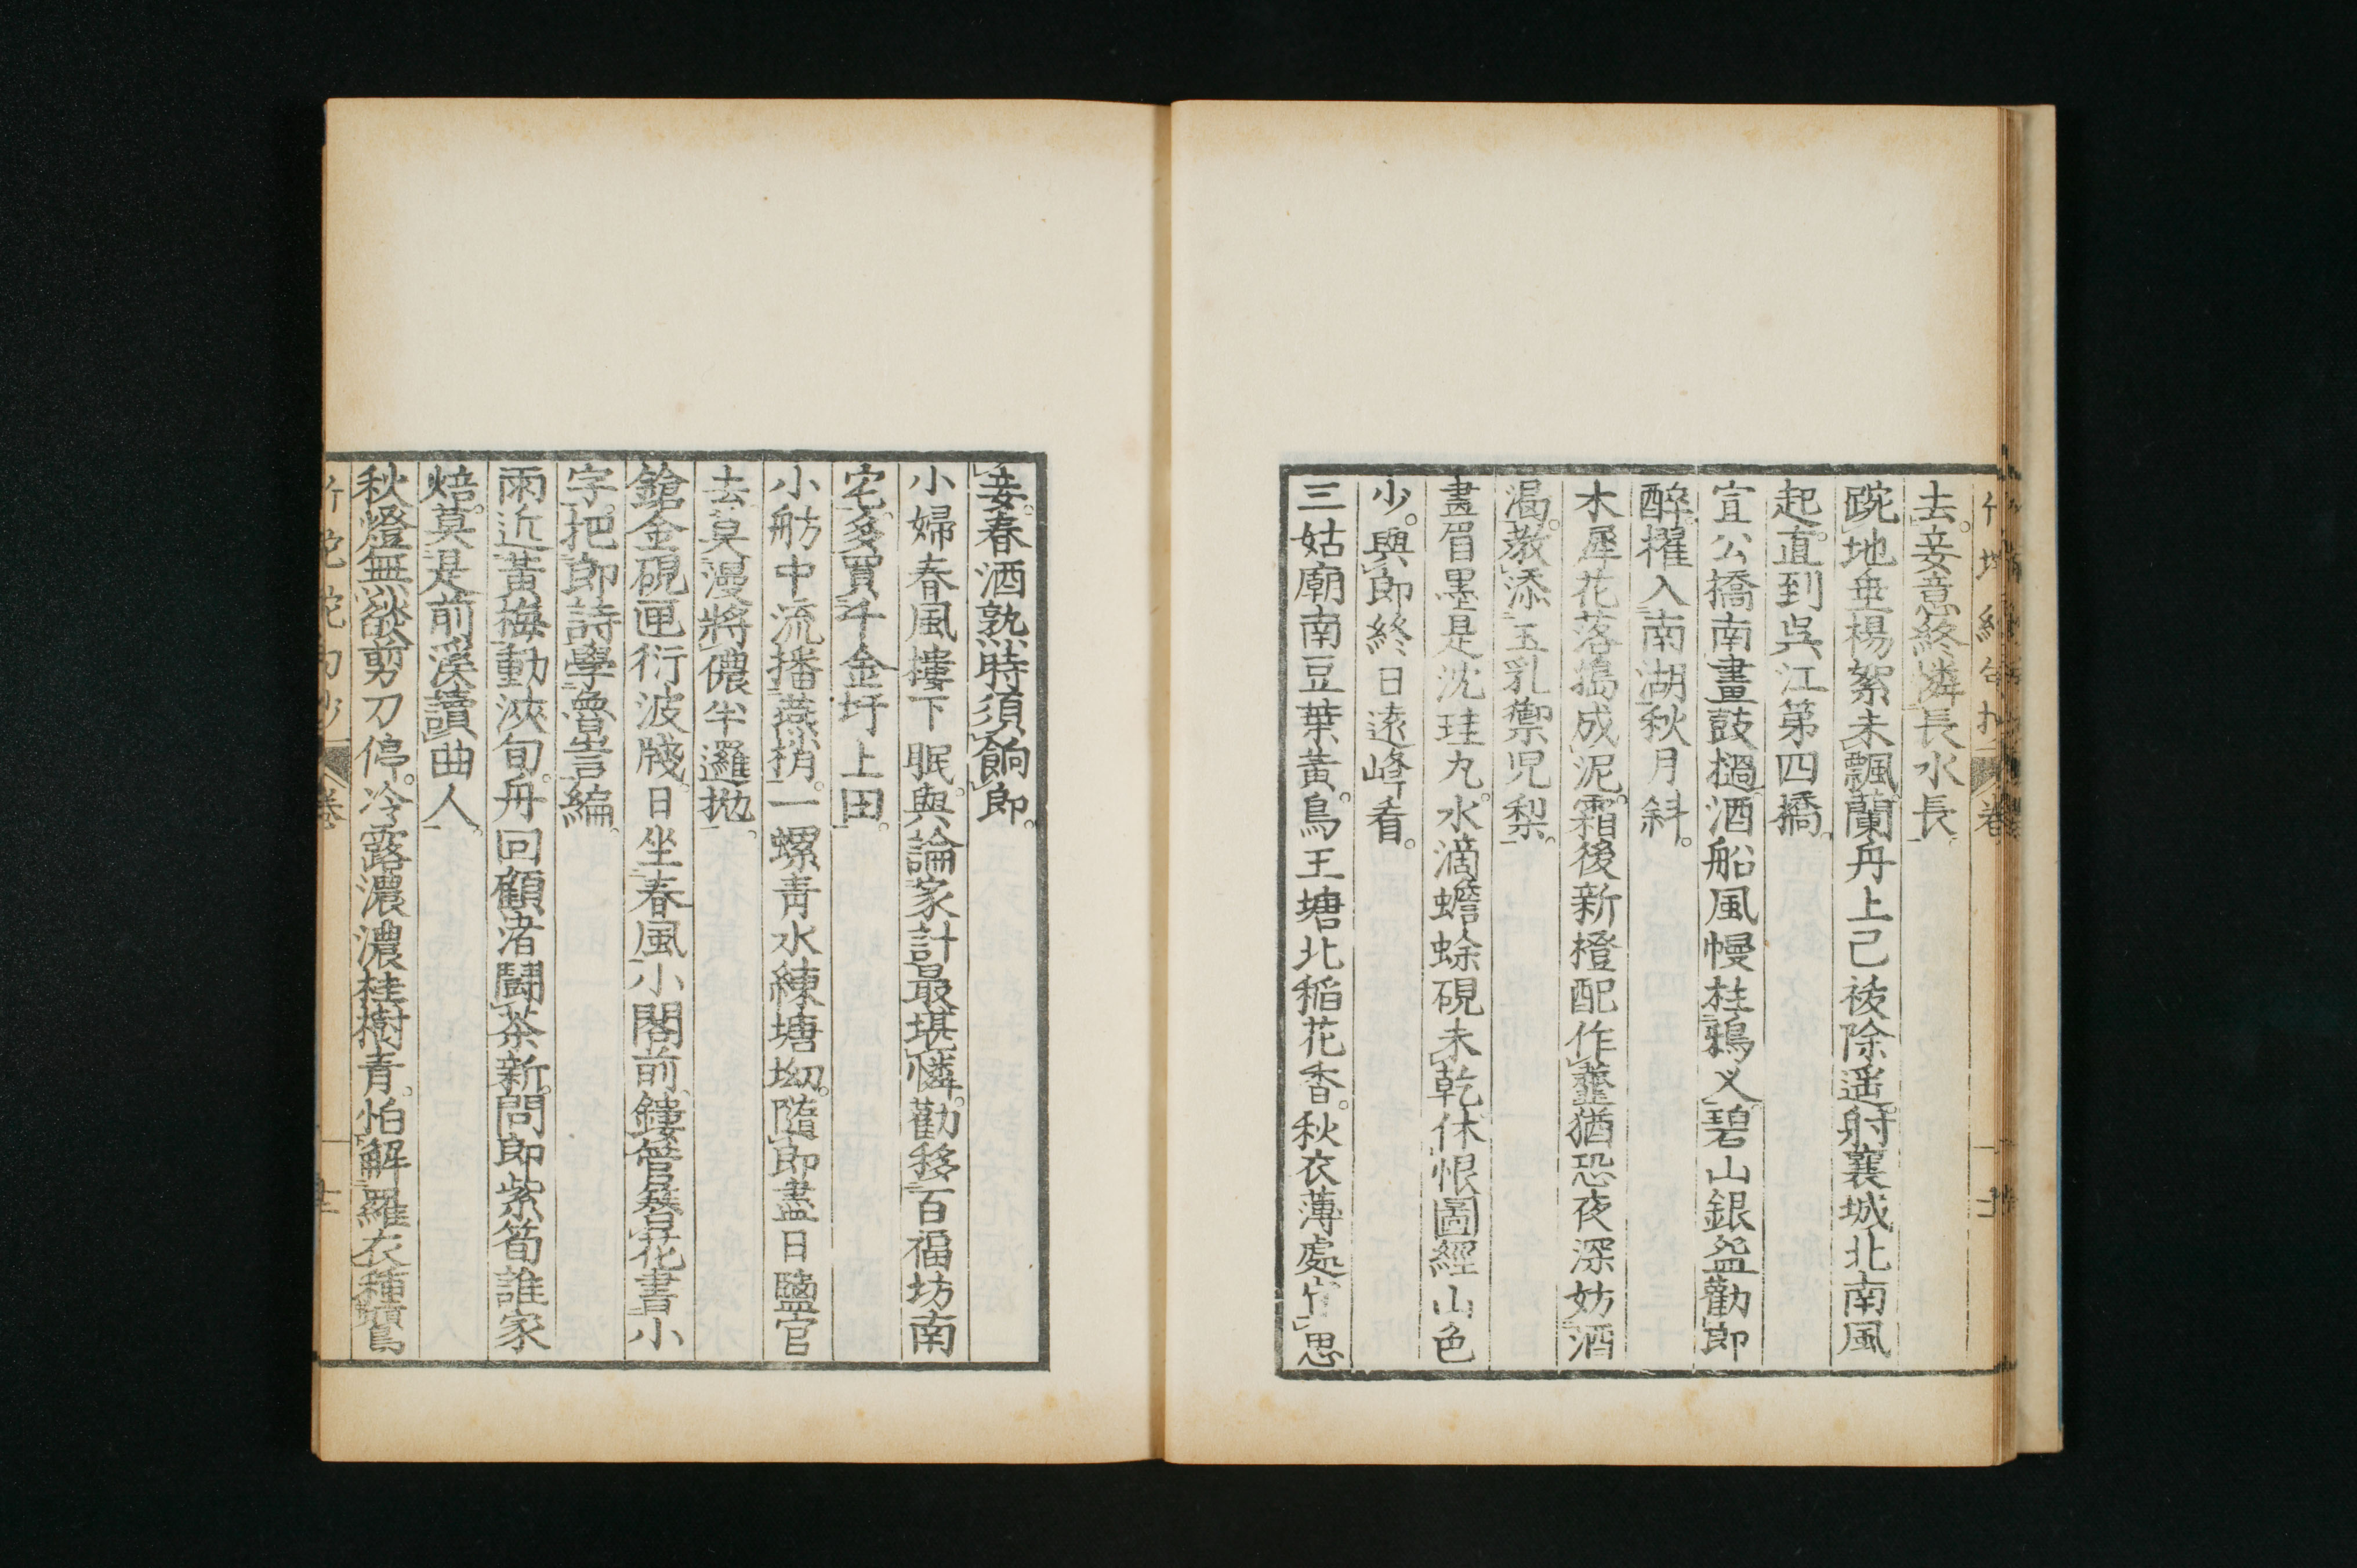 去妾意終憐長水長
踠地垂楊絮未飄蘭舟上巳祓除遥射襄城北南風
起直到吳江第四橋
宜公橋南畫鼓檛酒船風幔柱鴉乂碧山銀盌勸郎
醉櫂入南湖秋月斜
木犀花落搗成泥霜後新橙配作虀猶恐夜深妨酒
渴教添玉乳禦児梨
畫眉墨是沈珪丸水滴蟾蜍硯未乾休恨圖經山色
少與郎終日遠峰看
三姑廟南豆葉黃鳥王塘北稲花香秋衣薄處宜思
妾春酒熟時須餉郎
小婦春風摟下眠與論家計最堪憐勸移百福坊南
宅多買千金圩上田
小舫中流播燕梢一螺青水練塘坳隨郎盡日鹽官
去莫漫將儂半邏拋
鎗金硯匣衍波牋日坐春風小閣前鏤管簪花書小
字把郎詩學魯訔編
雨近黃梅動浹旬舟回顧渚鬪茶新問郎紫筍誰家
焙莫是前溪讀曲人
秋燈無燄剪刀停冷露濃濃桂樹青怕解羅衣種鶯